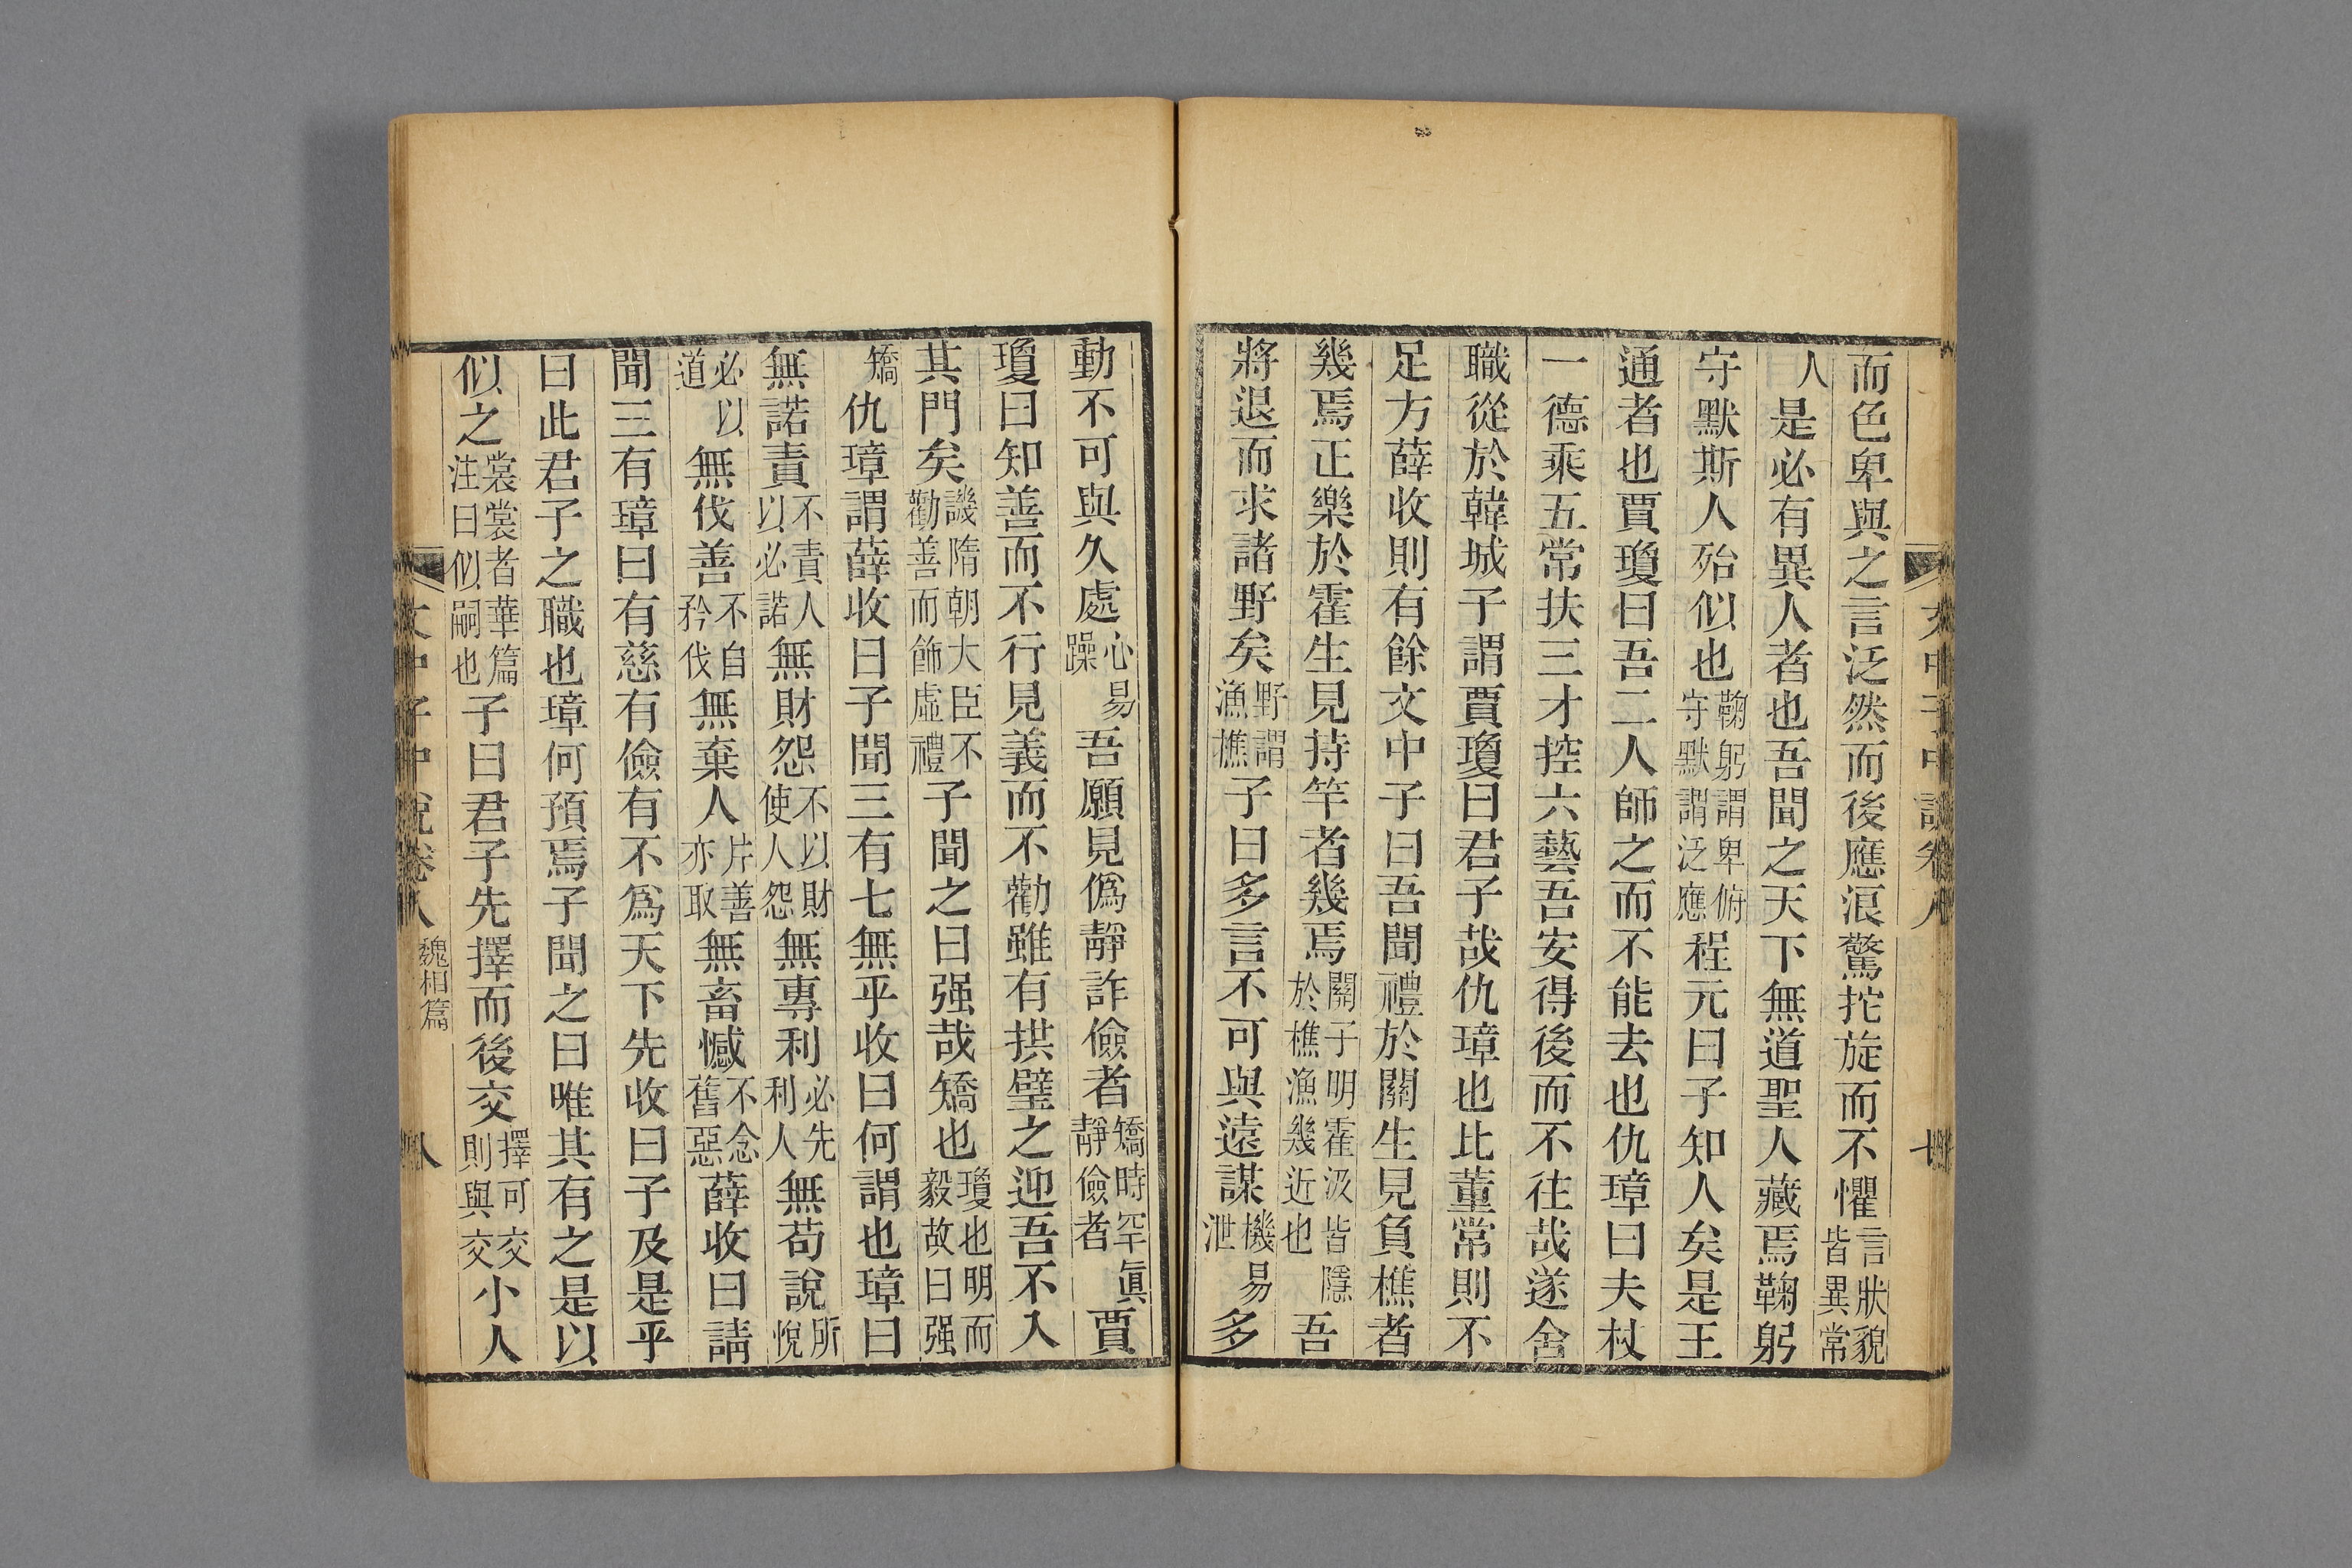 文中子中說卷八 七
而色卑與之言泛然而後應浪驚拕旋而不懼言狀貌皆異常
人是必有異人者也吾聞之天下無道聖人藏焉鞠躬
守默斯人殆似也鞠躬謂卑俯守默謂泛應程元曰子知人矣是王
通者也賈瓊曰吾二人師之而不能去也仇璋曰夫杖
一德乘五常扶三才控六藝吾安得後而不往哉遂舍
職從於韓城子謂賈瓊曰君子哉仇璋也比董常則不
足方薛收則有餘文中子曰吾聞禮於關生見負樵者
幾焉正樂於霍生見持竿者幾焉關子明霍汲皆隱於樵漁幾近也吾
將退而求諸野矣野謂漁樵子曰多言不可與遠謀機易泄多
動不可與久處心易躁吾願見僞靜詐儉者矯時罕眞靜儉者賈
瓊曰知善而不行見義而不勸雖有拱璧之迎吾不入
其門矣譏隋朝大臣不勸善而飾虛禮子聞之曰强哉矯也瓊也明而毅故曰强
矯仇璋謂薛收曰子聞三有七無乎收曰何謂也璋曰
無諾責不責人以必諾無財怨不以財使人怨無專利必先利人無苟說所悅
必以道無伐善不自矜伐無棄人片善亦取無畜憾不念舊惡薛收曰請
聞三有璋曰有慈有儉有不爲天下先收曰子及是乎
曰此君子之職也璋何預焉子聞之曰唯其有之是以
似之裳裳者華篇注曰似嗣也子曰君子先擇而後交擇可交則與交小人
文中子中說卷八 魏相篇 八